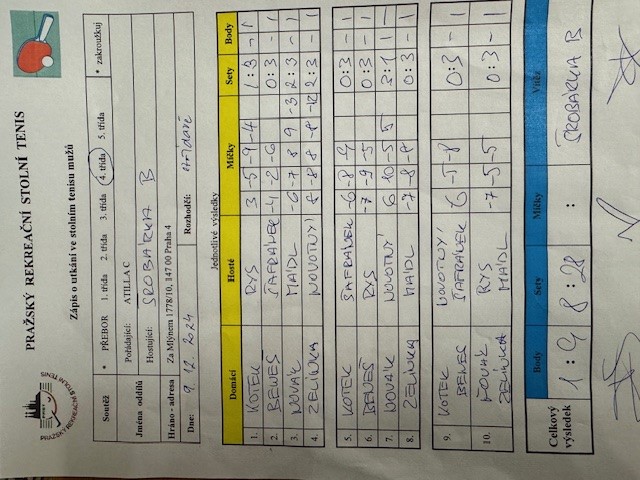 PRAŽSKÝ REKREAČNÍ STOLNÍ TENIS
Zápis o utkání ve stolním tenisu mužů
Soutěž * PŘEBOR 1. třída 2. třída 3. třída 4. třída 5. třída * zakroužkuj
Jména oddílů Pořádající: ATILLA C
Hostující: ŠROBÁRKA B
Hráno - adresa Za Mlýnem 1778/10, 147 00 Praha 4
Dne: 9.12.2024 Rozhodčí: střídavě
Jednotlivé výsledky
Domácí Hosté Míčky Sety Body
1. KOTEK RYS 3 -5 -9 -4 1:3 - 1
2. BENEŠ ŠAFRÁNEK -4 -2 -6 0:3 - 1
3. NOVÁK MAIDL -6 -7 8 9 -3 2:3 - 1
4. ZELINKA NOVOTNÝ -8 8 -8 -12 2:3 - 1
5. KOTEK ŠAFRÁNEK -6 -8 -9 0:3 - 1
6. BENEŠ RYS -7 -9 -5 0:3 - 1
7. NOVÁK NOVOTNÝ 6 10 -5 5 3:1 1 -
8. ZELINKA MAIDL -7 -8 -8 0:3 - 1
9. KOTEK NOVOTNÝ
BENEŠ ŠAFRÁNEK -6 -5 -8 0:3 - 1
10. NOVÁK RYS
ZELINKA MAIDL -7 -5 -5 0:3 - 1
Celkový výsledek Body Sety Míčky Vítěz
1 : 9 8 : 28 : ŠROBÁRKA B